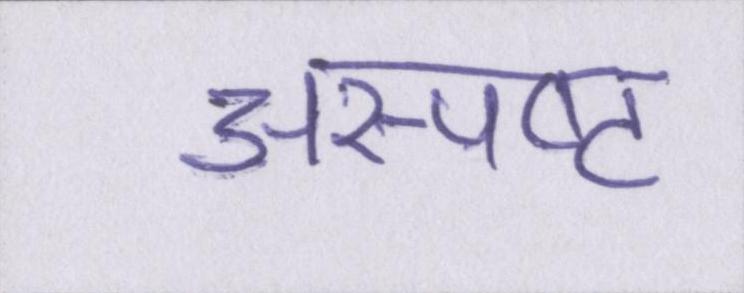 अस्पष्ट